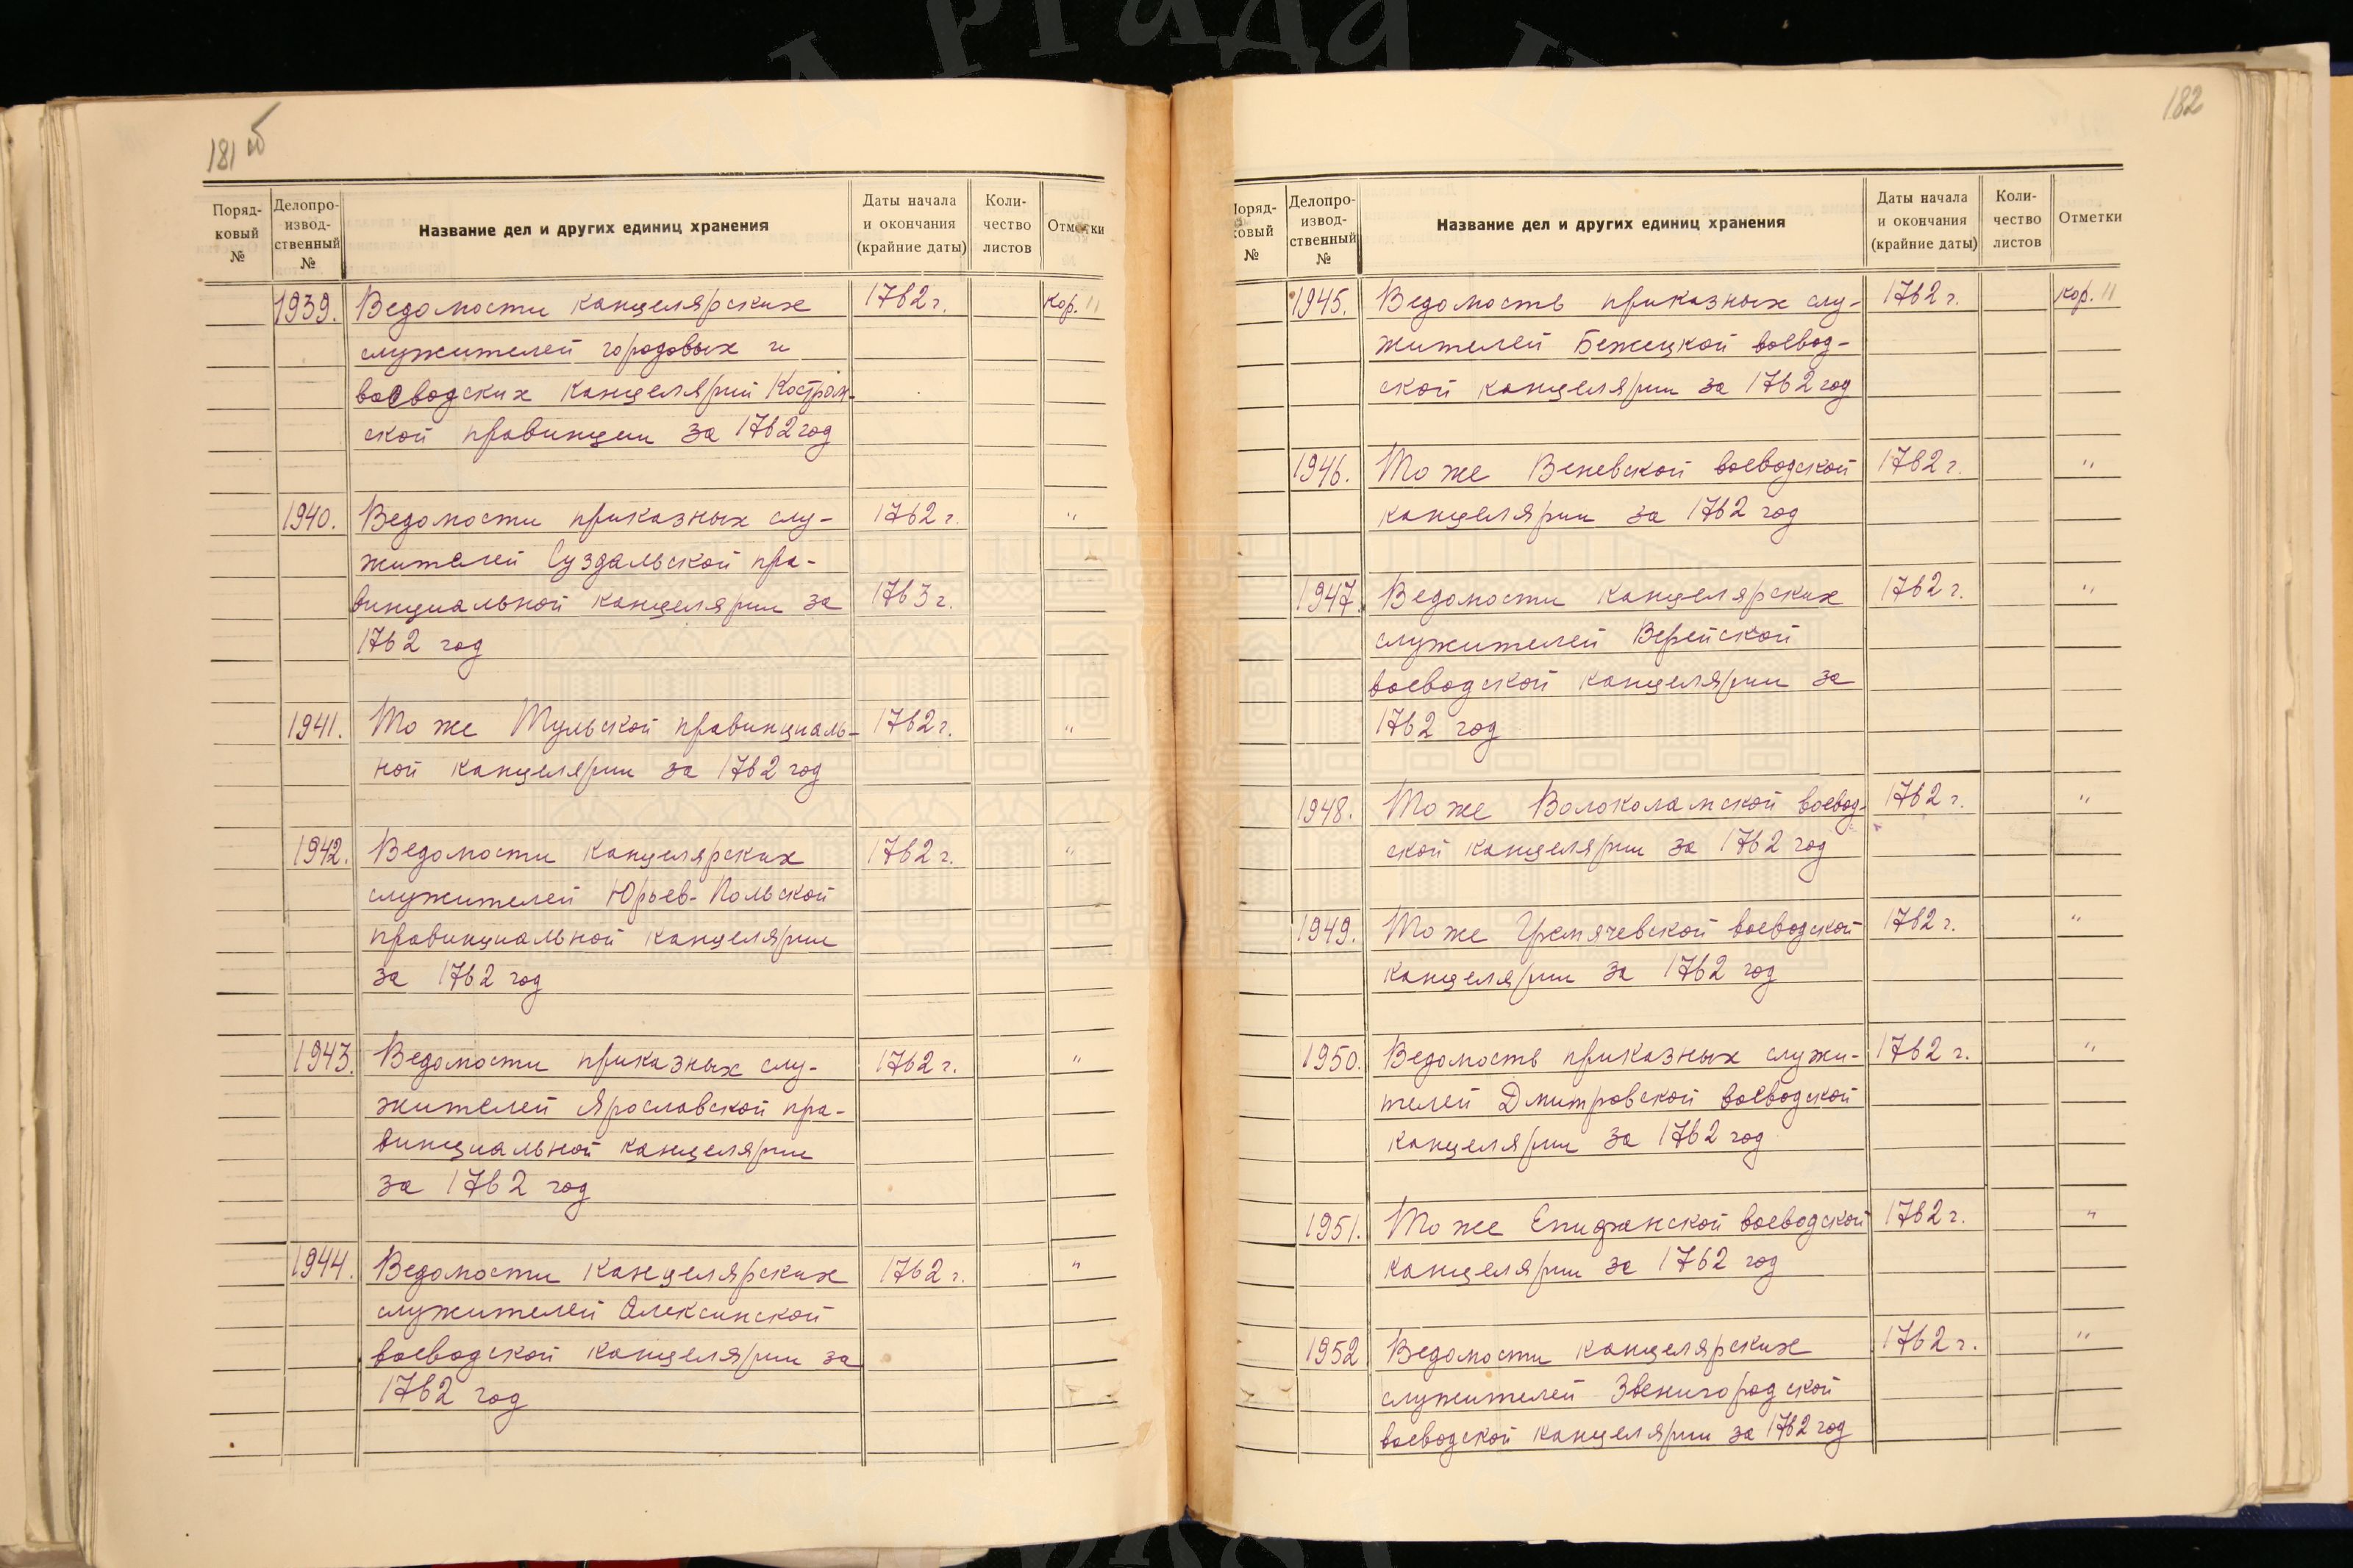 181 об
Поряд-
ковый
№
Делопро-
извод-
ственный
№
Название дел и других единиц хранения
Даты начала
и окончания
(крайние даты)
Коли-
чество
листов
Отметки
1939. Ведомости канцелярских 1762 г. кор. 11
служителей городовых и
воеводских канцелярий Костром-
ской провинции за 1762 год
1940. Ведомости приказных слу- 1762 г. "
жителей Суздальской про-
винциальной канцелярии за 1763 г.
1762 год
1941. То же Тульской провинциаль- 1762 г. "
ной канцелярии за 1762 год
1942. Ведомости канцелярских 1762 г. "
служителей Юрьев-Польской
провинциальной канцелярии
за 1762 год
1943. Ведомости приказных слу- 1762 г. "
жителей Ярославской про-
винциальной канцелярии
за 1762 год
1944. Ведомости канцелярских 1762 г. "
служителей Алексинской
воеводской канцелярии за
1762 год
182
Поряд-
ковый
№
Делопро-
извод-
ственный
№
Название дел и других единиц хранения
Даты начала
и окончания
(крайние даты)
Коли-
чество
листов
Отметки
1945. Ведомость приказных слу- 1762 г. кор. 11
жителей Бежецкой воевод-
ской канцелярии за 1762 год
1946. То же Веневской воеводской 1762 г. "
канцелярии за 1762 год
1947. Ведомости канцелярских 1762 г. "
служителей Верейской
воеводской канцелярии за
1762 год
1948. То же Волоколамской воевод- 1762 г. "
ской канцелярии за 1762 год
1949. То же Гремячевской воеводской 1762 г. "
канцелярии за 1762 год
1950. Ведомость приказных служи- 1762 г. "
телей Дмитровской воеводской
канцелярии за 1762 год
1951. То же Епифанской воеводской 1762 г. "
канцелярии за 1762 год
1952 Ведомости канцелярских 1762 г. "
служителей Звенигородской
воеводской канцелярии за 1762 год